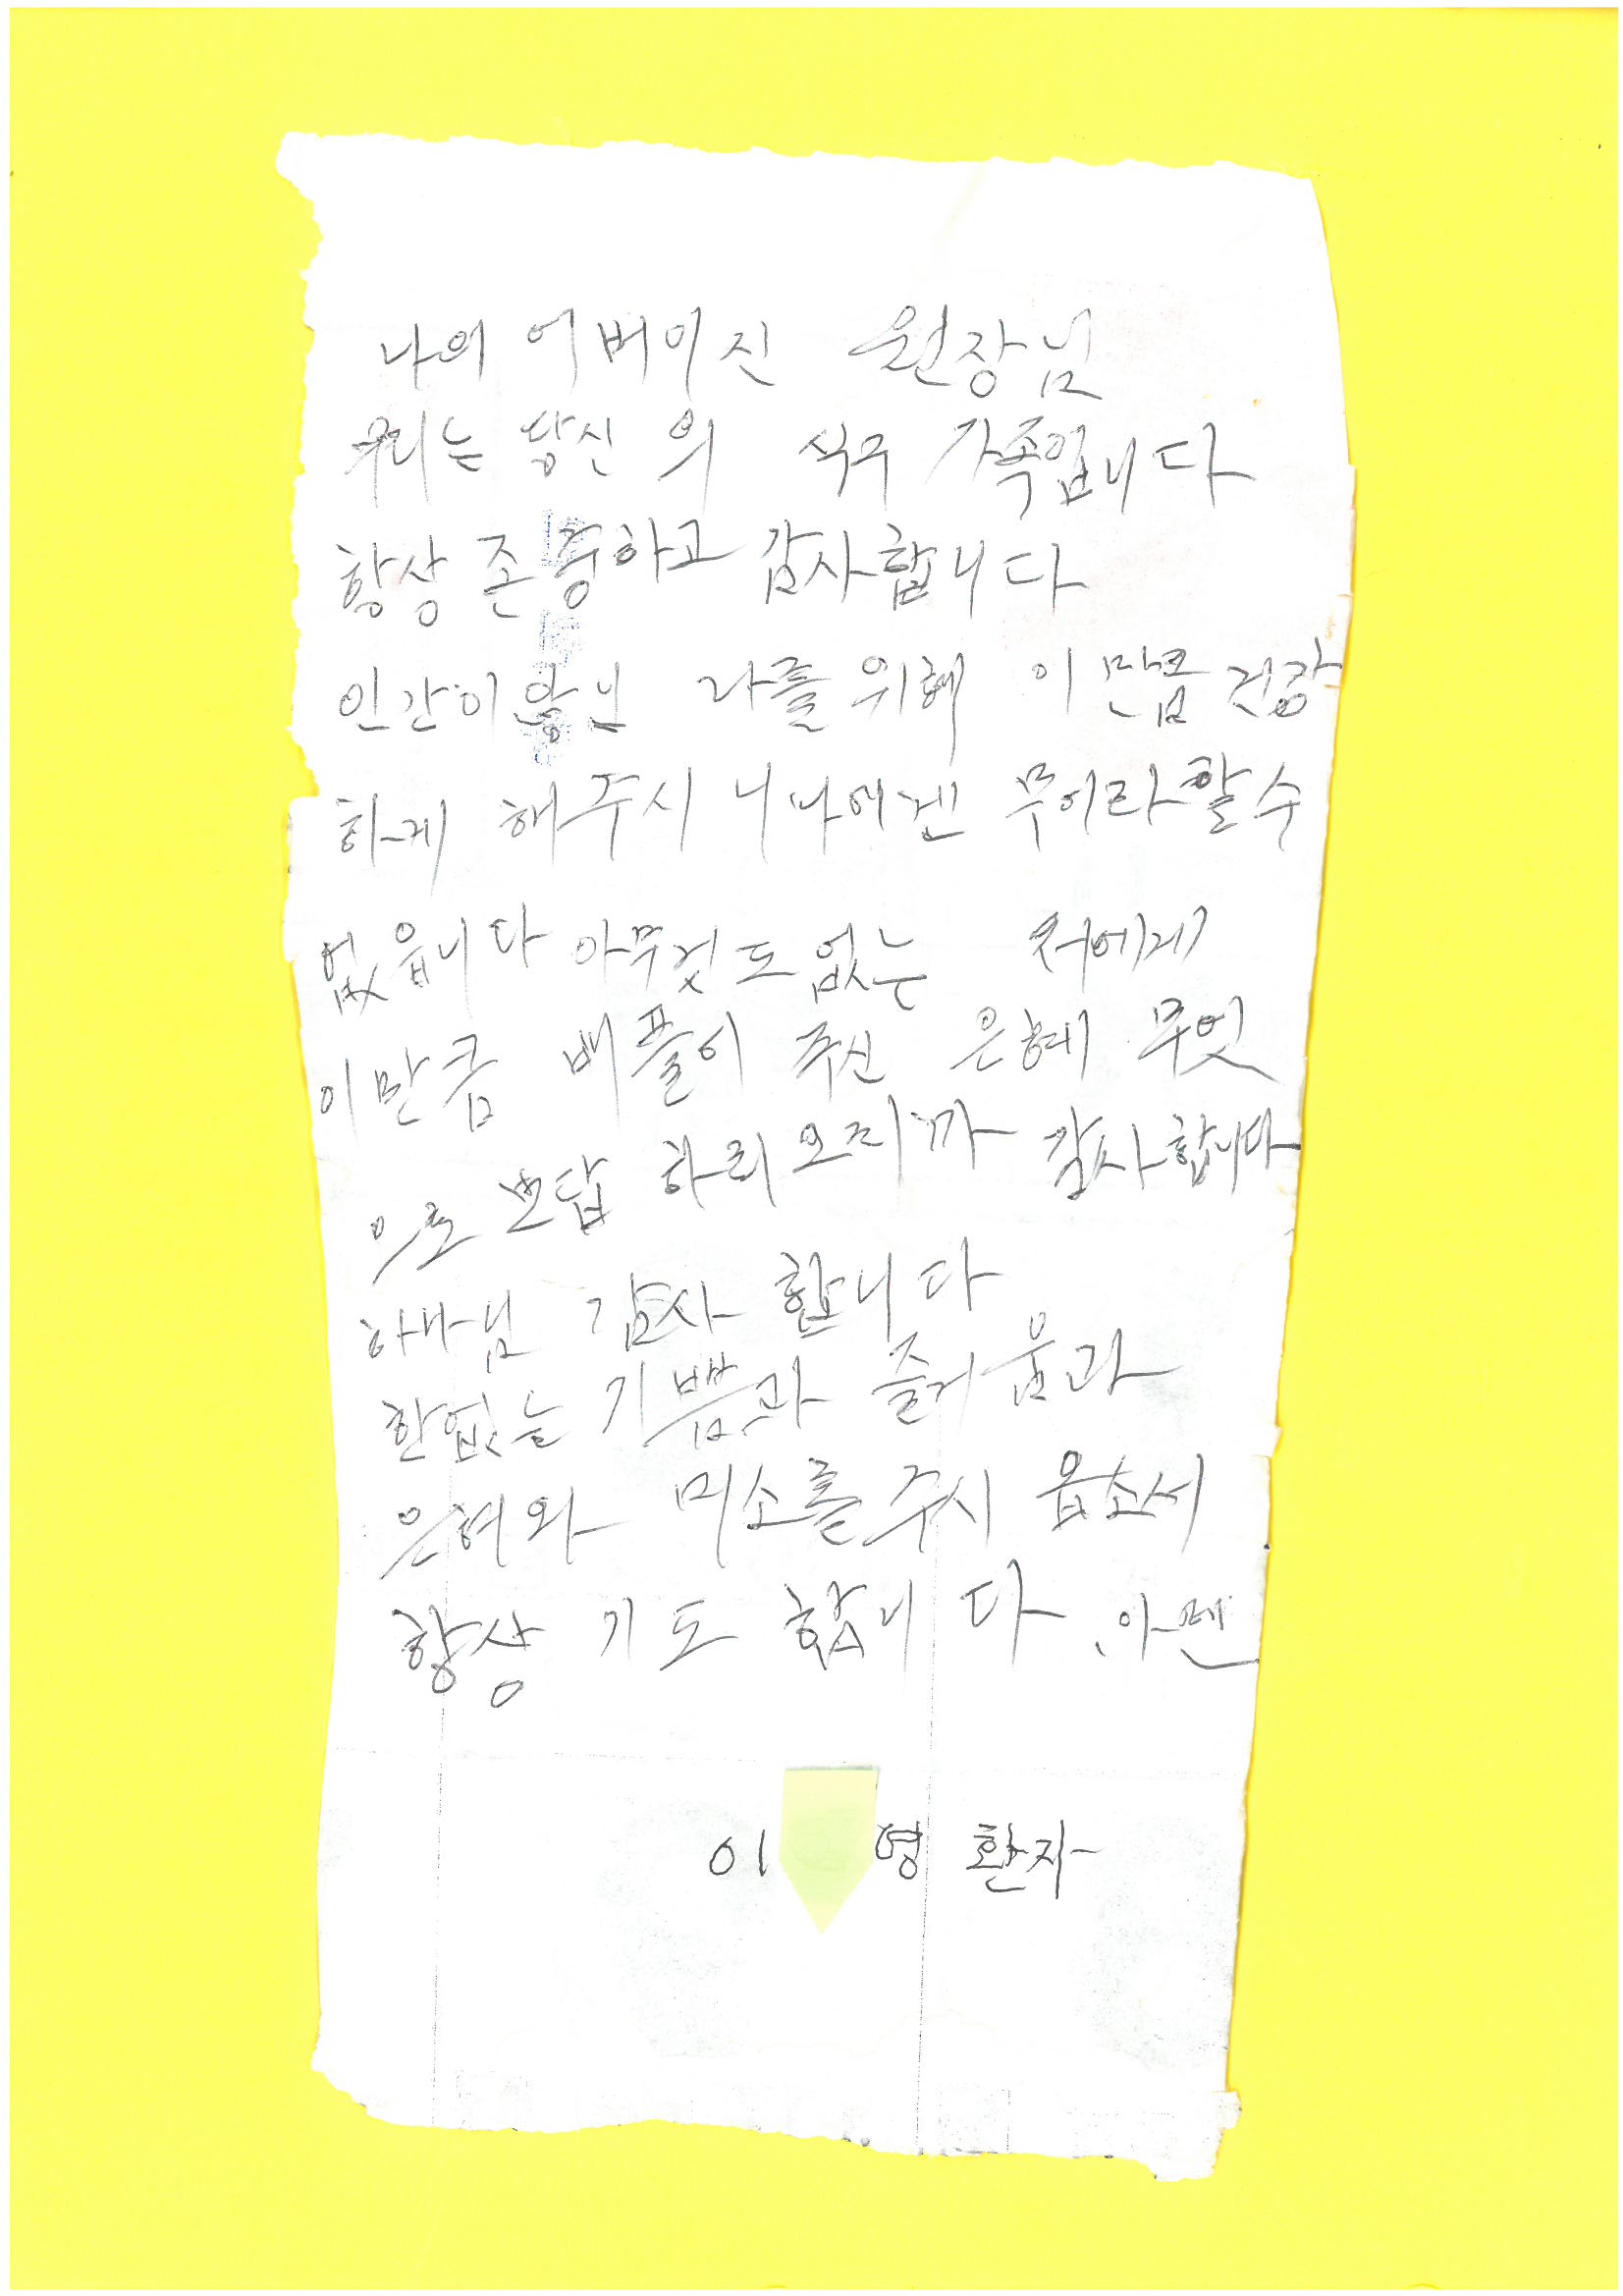 나의 어버이진 원장님
우리는 당신의 식구 가족입니다
항상 존중하고 감사합니다
인간이 않닌 나를 위해 이만큼 건강
하게 해주시니 나에겐 무어라 할수
없읍니다 아무것도 없는 저에게
이만큼 베플어 주신 은혜 무엇
으로 보답 하리오리까 감사합니다
하나님 감사 합니다
한없는 기쁨과 즐거움과
은혜와 미소를 주시 옵소서
항상 기도 합니다. 아멘
이 영 환자